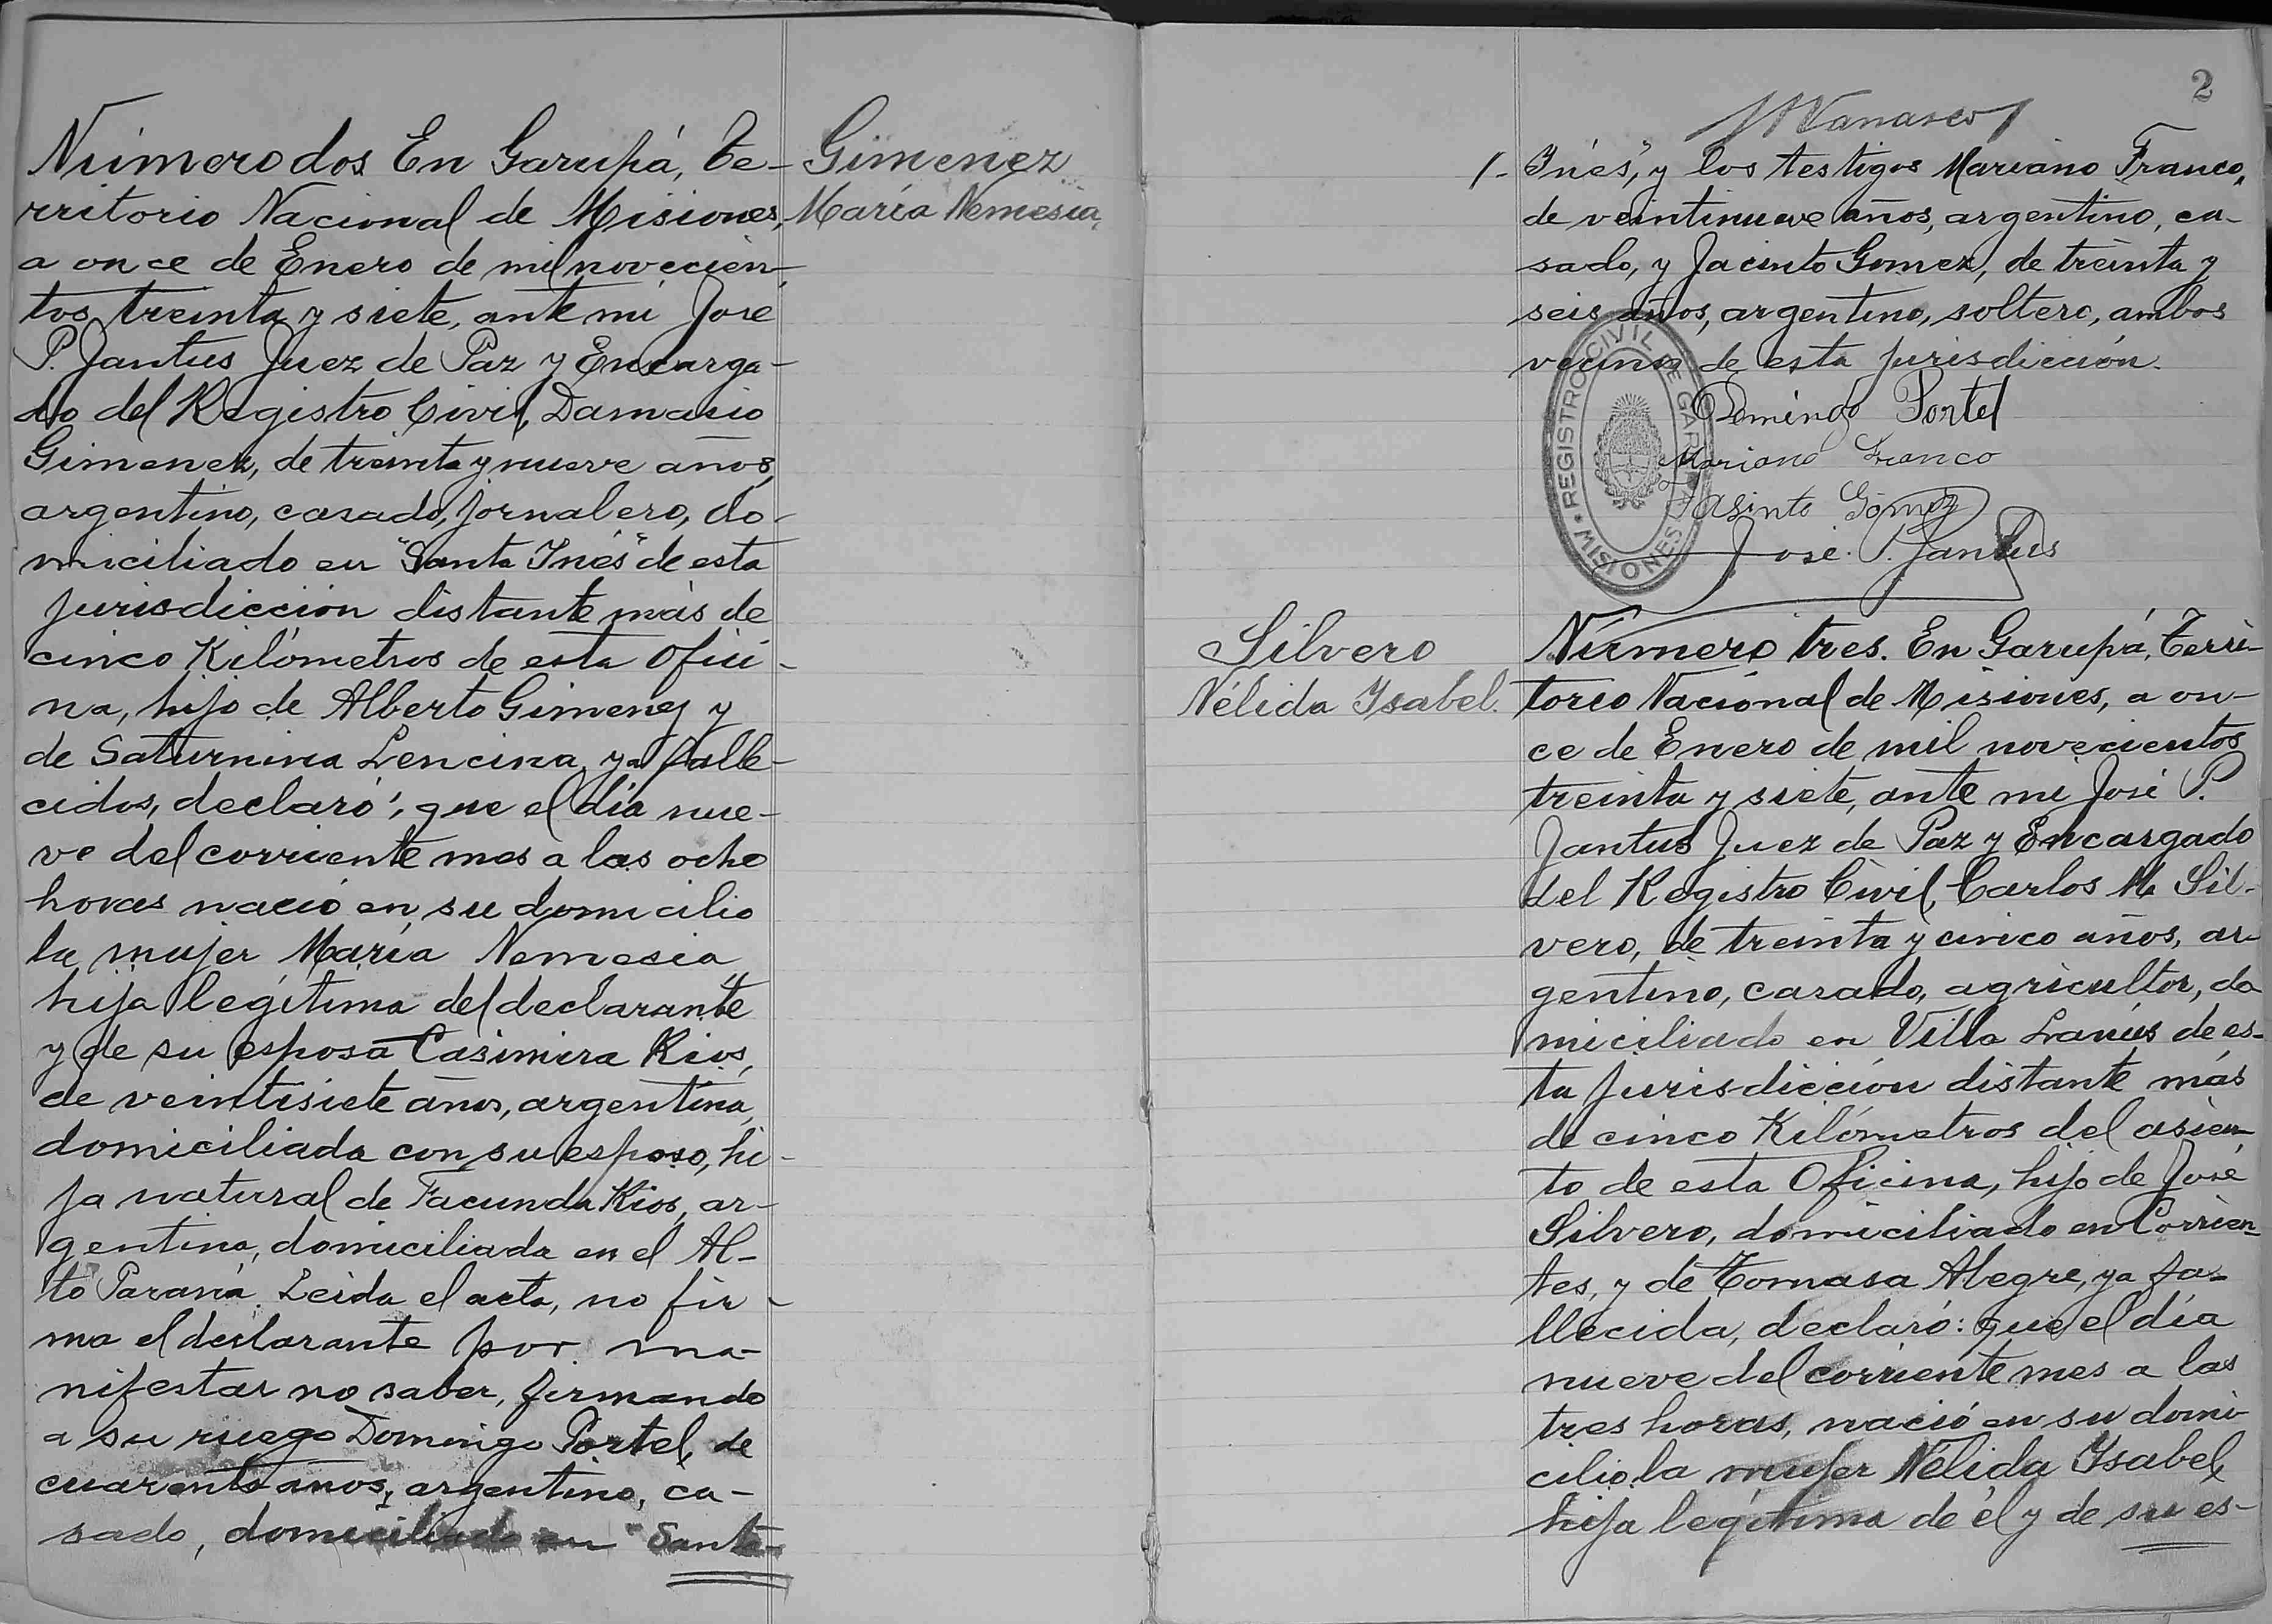 Número dos. En Garupá, Te-
rritorio Nacional de Misiones,
a once de Enero de mil novecien-
tos treinta y siete, ante mi José
P. Jantus Juez de Paz y Encarga-
do del Registro Civil, Damasio
Gimenez, de treinta y nueve años,
argentino, casado, jornalero, do-
miciliado en "Santa Inés" de esta
jurisdicción distante más de
cinco Kilómetros de esta Ofici-
na, hijo de Alberto Gimenez y
de Saturnina Lencina, ya falle-
cidos, declaró: que el día nue-
ve del corriente mes a las ocho
horas nació en su domicilio
la mujer María Nemesia
hija legítima del declarante
y de su esposa Casimira Rios,
de veintisiete años, argentina,
domiciliada con su esposo, hi-
ja natural de Facunda Rios, ar-
gentina, domiciliada en el Al-
to Paraná. Leida el acta, no fir-
ma el declarante por ma-
nifestar no saber, firmando
a su ruego Domingo Portel, de
cuarenta años, argentino, ca-
sado, domiciliado en "Santa
Gimenez
María Nemesia
2
1- Inés", y los testigos Mariano Franco,
de veintinueve años, argentino, ca-
sado, y Jacinto Gomez, de treinta y
seis años, argentino, soltero, ambos
vecinos de esta jurisdicción.
REGISTRO CIVIL DE GARUPA MISIONES
Domingo Portel
Mariano Franco
Jasinto Gómez
José P. Jantus
Silvero
Nélida Ysabel.
Número tres. En Garupá, Terri-
torio Nacional de Misiones, a on-
ce de Enero de mil novecientos
treinta y siete, ante mi José P.
Jantus Juez de Paz y Encargado
del Registro Civil, Carlos M. Sil-
vero, de treinta y cinco años, ar-
gentino, casado, agricultor, do
miciliado en Villa Lanús de es-
ta jurisdicción distante más
de cinco Kilómetros del asien-
to de esta Oficina, hijo de José
Silvero, domiciliado en Corrien-
tes, y de Tomasa Alegre, ya fa-
llecida, declaró: que el día
nueve del corriente mes a las
tres horas, nació en su domi-
cilio la mujer Nélida Ysabel,
hija legítima de él y de su es-